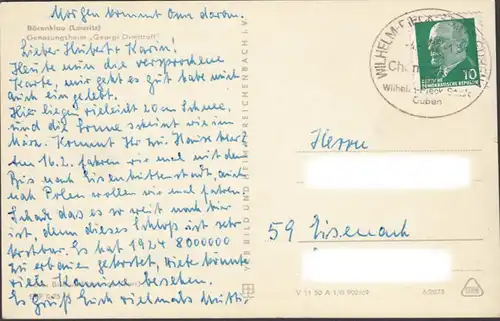 Morgen kommt Oma daran.
Bärenklau (Lausitz)
Genesungsheim „Georgi Dimitroff“
Lieber Hubert u. Karin!
Heute nun die versprochene
Karte, mir geht es gut habe mich
auch eingelebt.
Hier liegen vielleicht 20 cm Schnee,
und die Sonne scheint wie im
März. Kommt Ihr zu Hause klar?
Am 16.2. fahren wir mal mit dem
Bus nach Eisenhüttenstadt, auch
nach Polen wollen wir mal fahren.
Schade das es so weit nach hier
ist, denn dieses Schloß ist sehr
kostbar. Es hat 1924 8000000
zu erbauen gekostet, Viele könnte
viele Kamine besehen.
Es grüßt Euch vielmals Mutti.
VEB BILD UND HEIMAT REICHENBACH I. V.
WILHELM-PIECK-
Wilhelm-Pieck-Stadt
Guben
10
DEUTSCHE
DEMOKRATISCHE REPUBLIK
Herrn
59 Eisenach
V 11 50 A 1/B 902/69